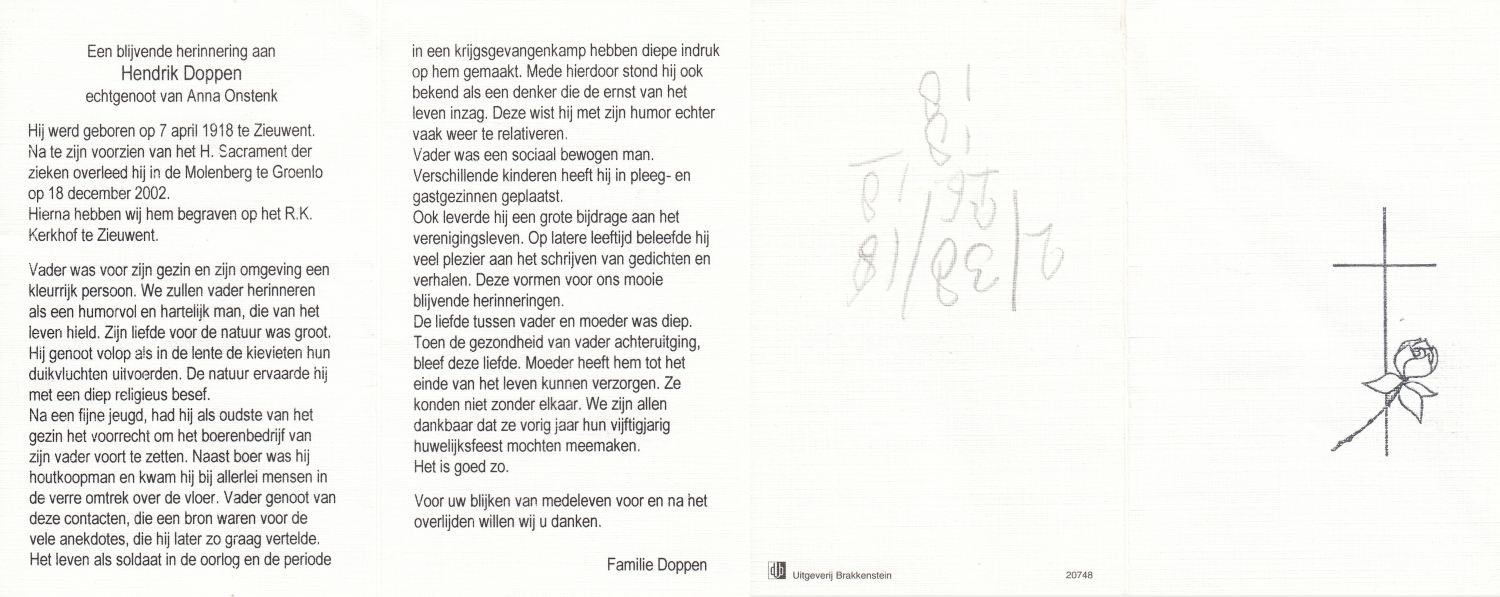 Een blijvende herinnering aan
Hendrik Doppen
echtgenoot van Anna Onstenk
Hij werd geboren op 7 april 1918 te Zieuwent.
Na te zijn voorzien van het H. Sacrament der
zieken overleed hij in de Molenberg te Groenlo
op 18 december 2002.
Hierna hebben wij hem begraven op het R.K.
Kerkhof te Zieuwent.
Vader was voor zijn gezin en zijn omgeving een
kleurrijk persoon. We zullen vader herinneren
als een humorvol en hartelijk man, die van het
leven hield. Zijn liefde voor de natuur was groot.
Hij genoot volop als in de lente de kievieten hun
duikvluchten uitvoerden. De natuur ervaarde hij
met een diep religieus besef.
Na een fijne jeugd, had hij als oudste van het
gezin het voorrecht om het boerenbedrijf van
zijn vader voort te zetten. Naast boer was hij
houtkoopman en kwam hij bij allerlei mensen in
de verre omtrek over de vloer. Vader genoot van
deze contacten, die een bron waren voor de
vele anekdotes, die hij later zo graag vertelde.
Het leven als soldaat in de oorlog en de periode
in een krijgsgevangenkamp hebben diepe indruk
op hem gemaakt. Mede hierdoor stond hij ook
bekend als een denker die de ernst van het
leven inzag. Deze wist hij met zijn humor echter
vaak weer te relativeren.
Vader was een sociaal bewogen man.
Verschillende kinderen heeft hij in pleeg- en
gastgezinnen geplaatst.
Ook leverde hij een grote bijdrage aan het
verenigingsleven. Op latere leeftijd beleefde hij
veel plezier aan het schrijven van gedichten en
verhalen. Deze vormen voor ons mooie
blijvende herinneringen.
De liefde tussen vader en moeder was diep.
Toen de gezondheid van vader achteruitging,
bleef deze liefde. Moeder heeft hem tot het
einde van het leven kunnen verzorgen. Ze
konden niet zonder elkaar. We zijn allen
dankbaar dat ze vorig jaar hun vijftigjarig
huwelijksfeest mochten meemaken.
Het is goed zo.
Voor uw blijken van medeleven voor en na het
overlijden willen wij u danken.
Familie Doppen
Uitgeverij Brakkenstein
20748